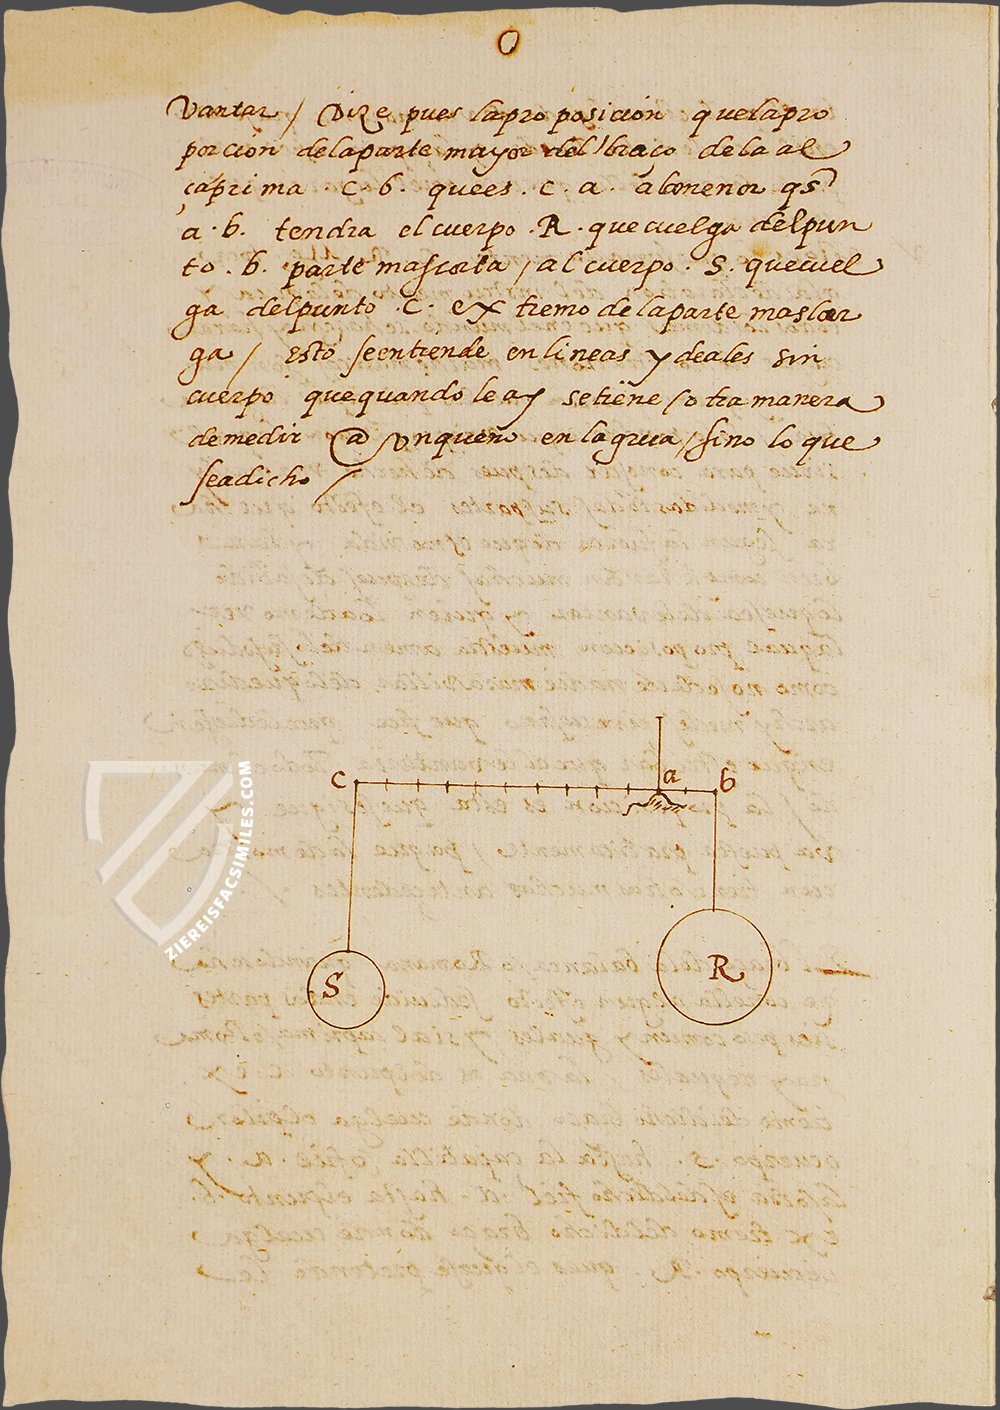 O
Vantar / Dize pues la pro posicion que la pro
porcion de la parte mayor del braço de la al
çaprima . c . b . que es . c . a . a la menor q̃ s
a . b . tendra el cuerpo . R . que cuelga del pun
to . b . parte mas corta / al cuerpo . S . que cuel
ga del punto . c . extremo de la parte mas lar
ga / esto se entiende en lineas ydeales sin
cuerpo que quando le ay se tiene otra manera
de medir @ Vnque no en la grua / sino lo que
se a dicho /
c a b
S R
ZIEREISFACSIMILES.COM